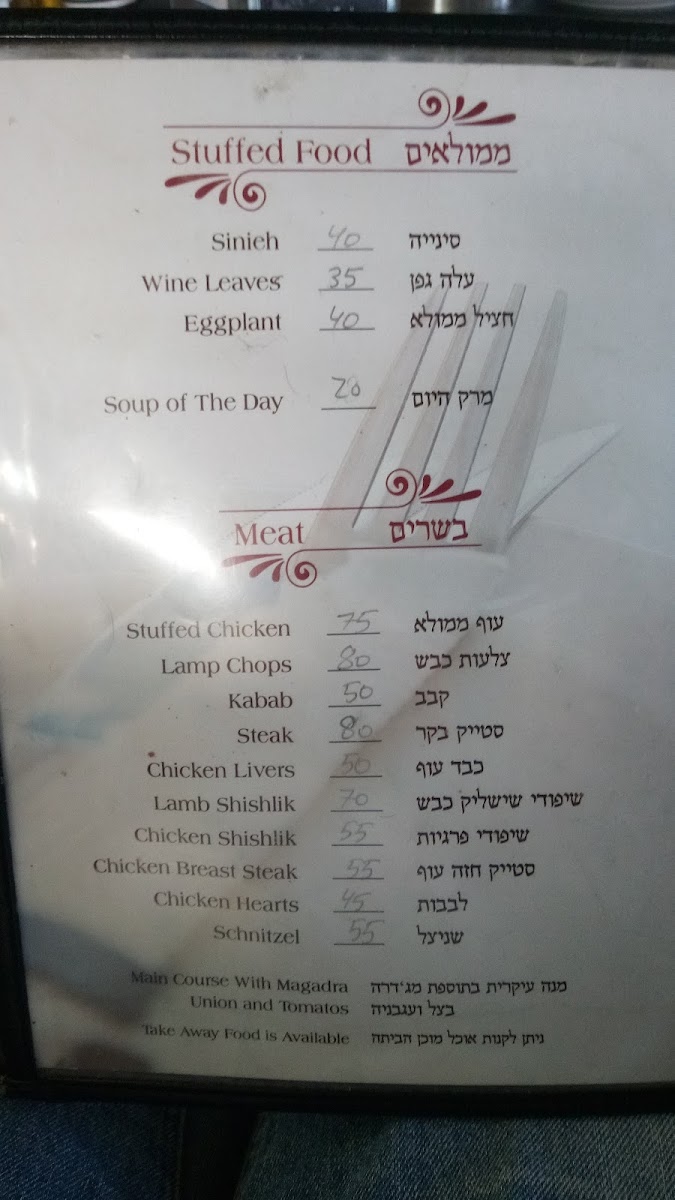 Stuffed Food ממולאים
Sinieh 40 סינייה
Wine Leaves 35 עלה גפן
Eggplant 40 חציל ממולא
Soup of The Day 20 מרק היום
Meat בשרים
Stuffed Chicken 75 עוף ממולא
Lamp Chops 80 צלעות כבש
Kabab 50 קבב
Steak 80 סטייק בקר
Chicken Livers 50 כבד עוף
Lamb Shishlik 70 שיפודי שישליק כבש
Chicken Shishlik 55 שיפודי פרגיות
Chicken Breast Steak 55 סטייק חזה עוף
Chicken Hearts 45 לבבות
Schnitzel 55 שניצל
Main Course With Magadra מנה עיקרית בתוספת מג'דרה
Union and Tomatos בצל ועגבניה
Take Away Food is Available ניתן לקנות אוכל מוכן הביתה